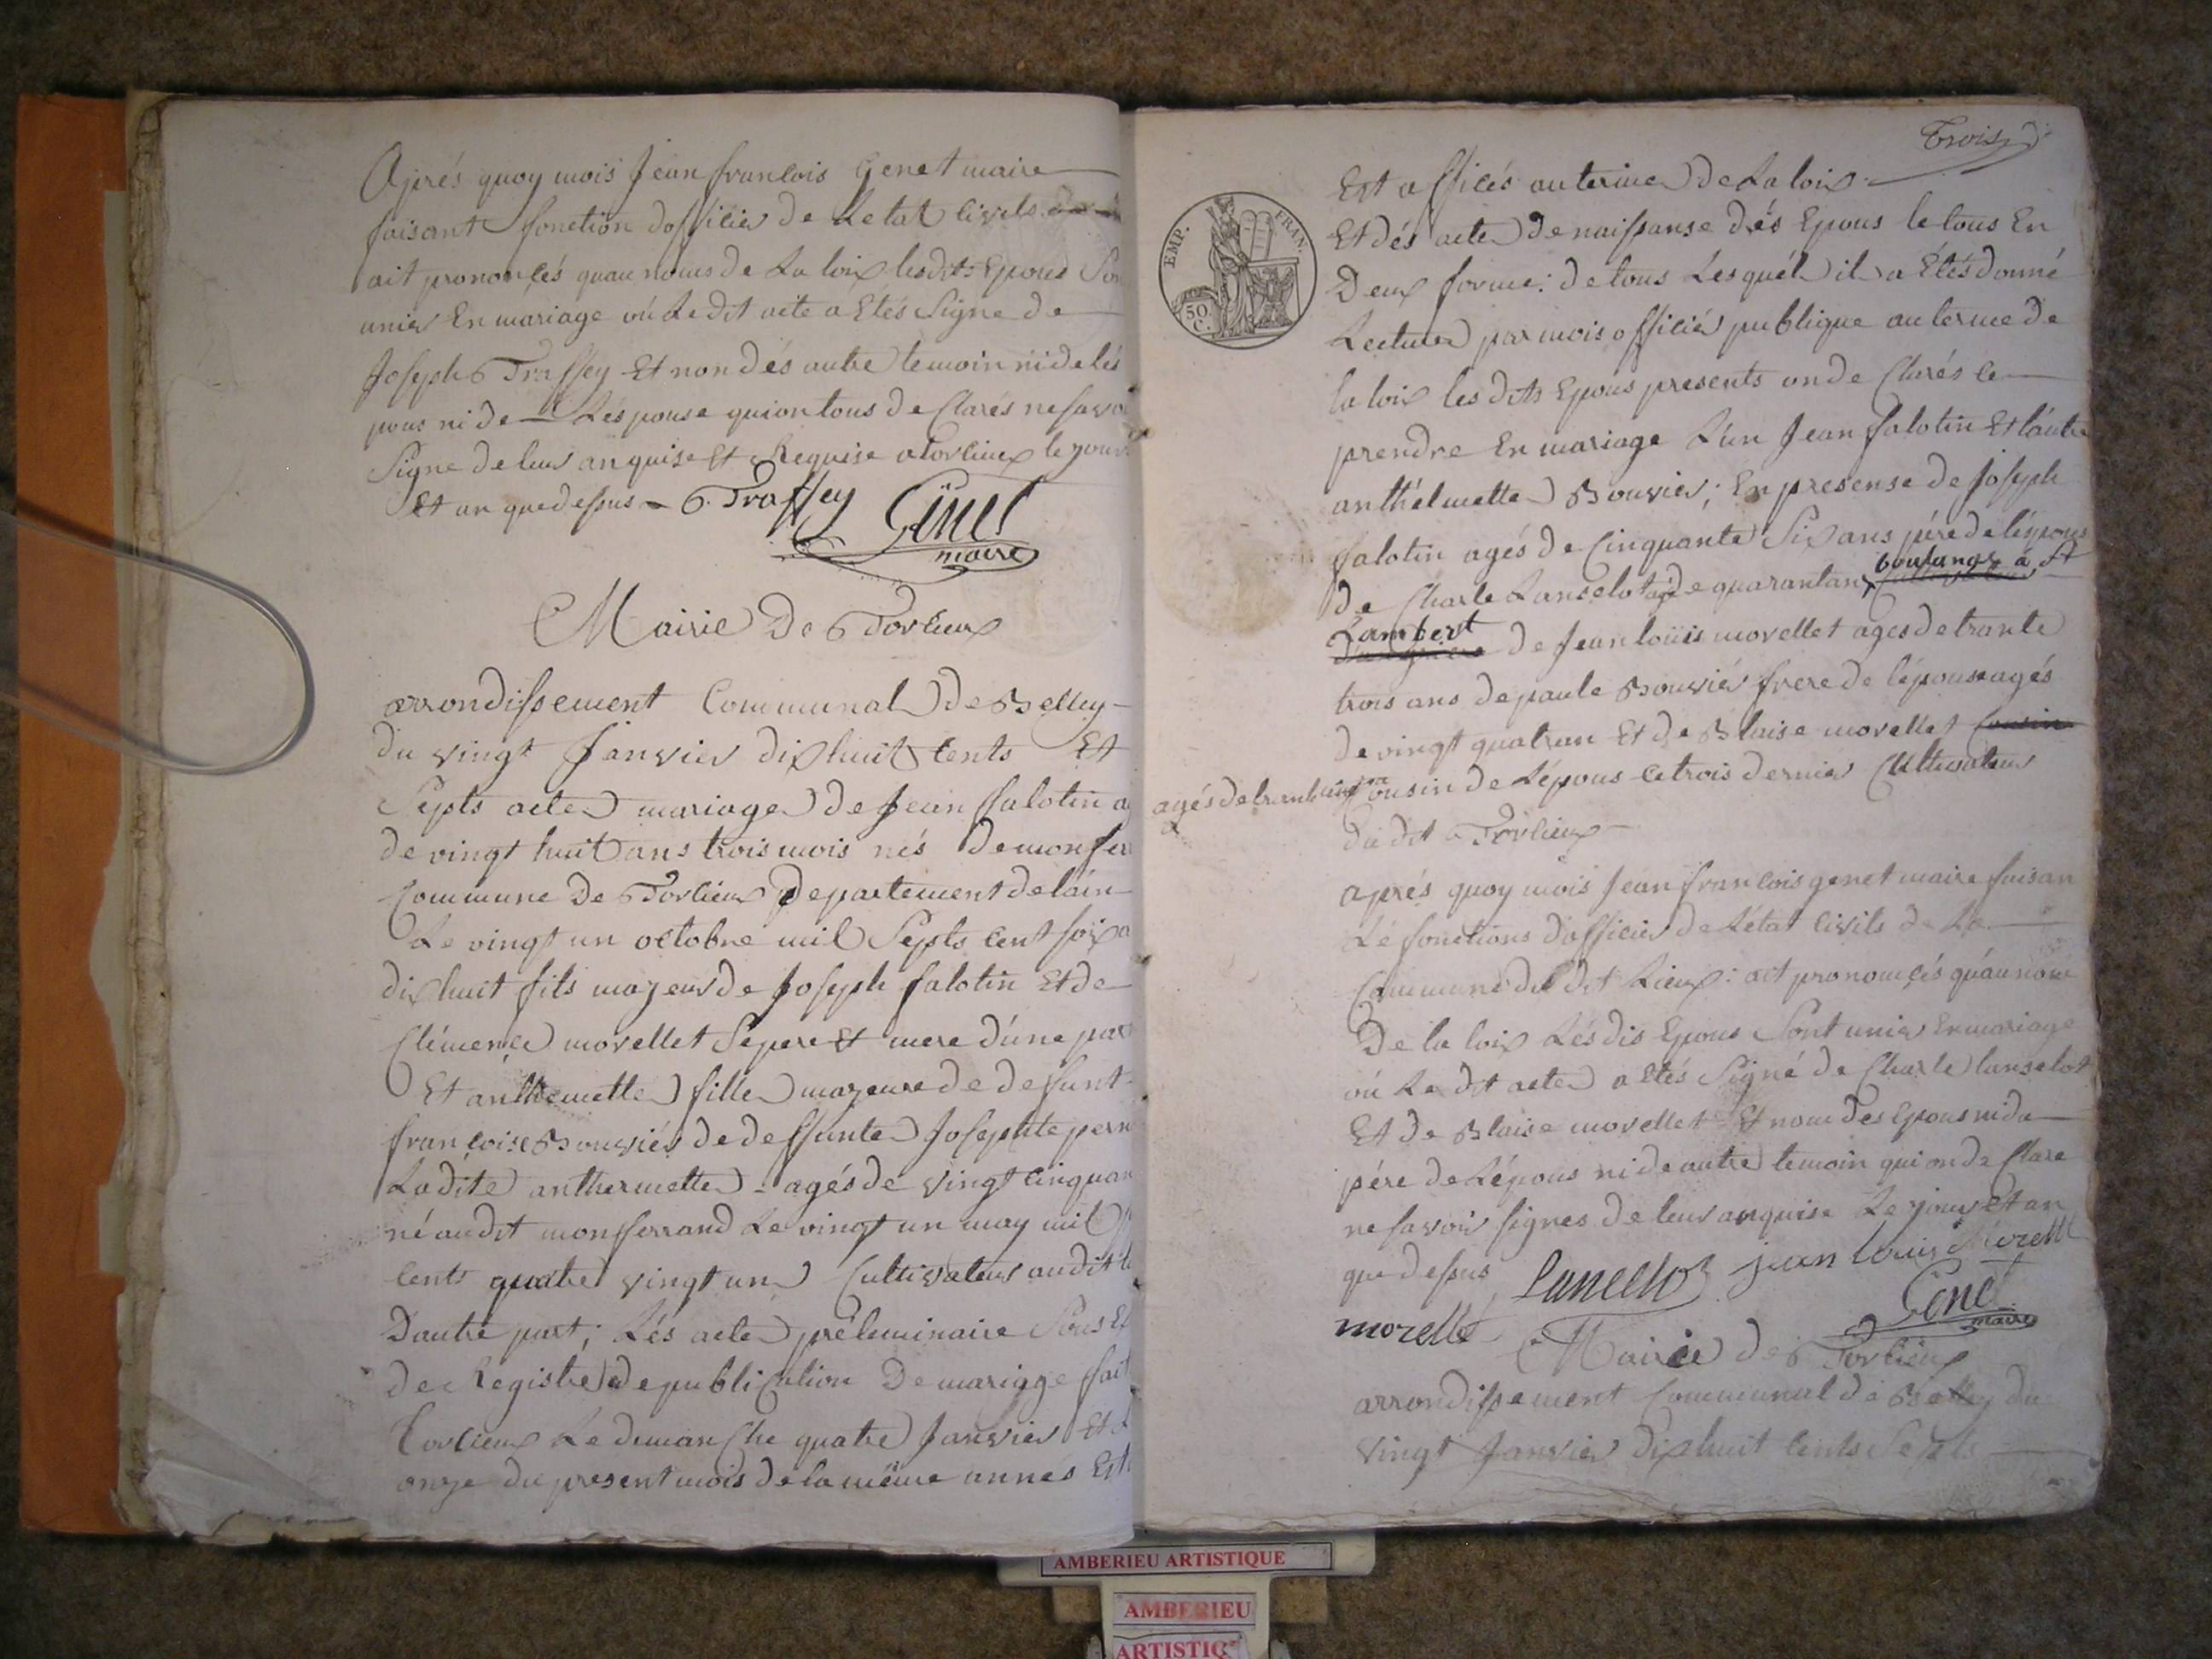 Après quoy mois Jean francois Genet maire
faisant fonction dofficier de Letat civils
ait prononcés quau noms de La loix lesdits Epous Son
unies En mariage où Le dit acte a Etés Signe de
Joseph Traffey Et non dés autre temoin ni de lés
pous ni de Lésponse quion tous de Clarés ne savoi
Signe de leur anquise Et Requise a torcieux le jour
Et an que dessus - Traffey Genet
maire
Mairie De Torcieux
arrondissement Communal de Belley
du vingt Janvier dixhuit Cents Et
Septs acte mariage de Jean falotin ag
de vingt huit ans trois mois nés de monfer
Commune De Torcieux Departement de láin
Le vingt un octobre mil Septs Cent soixa
dixhuit fils majeur de Joseph falotin Et de
Clémence morellet Se pere Et mere dúne part
Et anthemette fille majeure de defunt
françoise Bouviér de deffunte Josephte pern
Ladite anthermette - agés de vingt Cinquan
né audit monferrand Le vingt un may mil
Cents quatre vingt un Cultivateur audit
Dautre part; Lés acte préleminaire Sous Et
de Registre de publication De mariage fait
Torcieux Le dimanChe quatre Janvier Et L
onze du present mois de la même annés Est
Trois
Est affichés au terme de La loix
Et dés acte de naissanse dés Epous le tous En
Deux forme: de tous Lesquél il a Étés donné
Lecture par mois officiér publique au terme de
la loix les dits Epous presents onde Clarés se
prendre En mariage L'un Jean falotin Et láutre
anthélmette Bouvier; En presense de Joseph
falotin agés de Cinquante Six ans pére de lépous
boulangé á St
de Charle Lanselot agé de quarantan
Lambert de Jean loüis morellet ages de trante
trois ans de paule Bouviér frere de lépouse agés
de vingt quatran Et de Blaise morellet Cousin
agés de trante Cousin de Lépous Cetrois dernier Cultivateur
du dit Torcieux
aprés quoy mois Jean francois genet maire faisan
Lé fonctions dofficier de Létat Civils de La
Commune du dit Lieux: ait pronomcés quáu nom
De la loix Lés dis Epous Sont unies En mariage
où Le dit acte a Etés Signé de Charle lanselot
Et de Blaise morellet Et nom des Epous ni du
pére de Lépous ni de autre temoin qui on de Clare
ne savoir signes de leur anquise Le jour Et an
que dessus Lancelot jean louis Morelle
morellé Genet
maire
Mairie de Torcieux
arrondissement Communal de Belley du
vingt Janvier dixhuit Cents Septs
EMP. FRAN.
50 C.
AMBERIEU ARTISTIQUE
AMBERIEU
ARTISTIQ